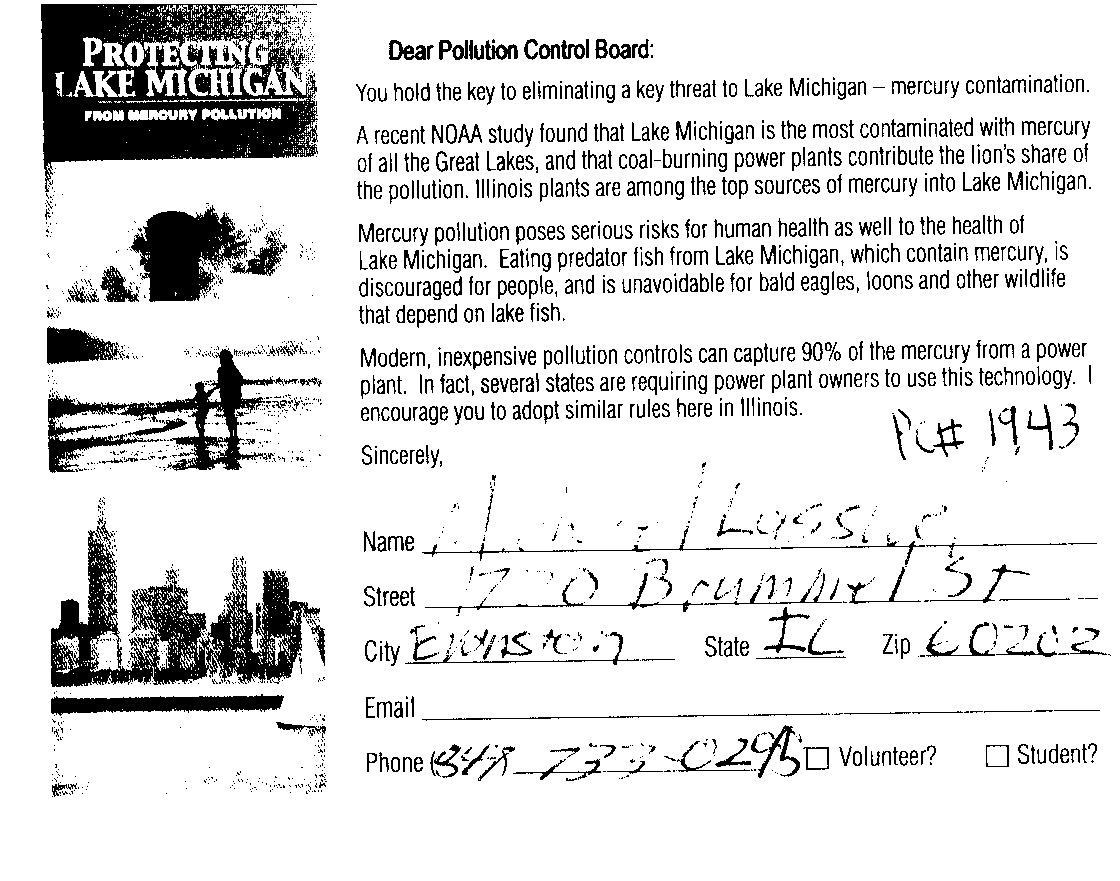 PROTECTING
LAKE MICHIGAN
FROM MERCURY POLLUTION
Dear Pollution Control Board:
You hold the key to eliminating a key threat to Lake Michigan – mercury contamination.
A recent NOAA study found that Lake Michigan is the most contaminated with mercury
of all the Great Lakes, and that coal-burning power plants contribute the lion's share of
the pollution. Illinois plants are among the top sources of mercury into Lake Michigan.
Mercury pollution poses serious risks for human health as well to the health of
Lake Michigan. Eating predator fish from Lake Michigan, which contain mercury, is
discouraged for people, and is unavoidable for bald eagles, loons and other wildlife
that depend on lake fish.
Modern, inexpensive pollution controls can capture 90% of the mercury from a power
plant. In fact, several states are requiring power plant owners to use this technology. I
encourage you to adopt similar rules here in Illinois.
PC# 1943
Sincerely,
Name
Street Brummel St
City Evanston State IL Zip 60202
Email
Phone Volunteer? Student?